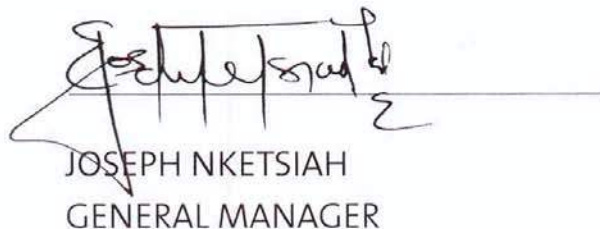 JOSEPH NKETSIAH
GENERAL MANAGER